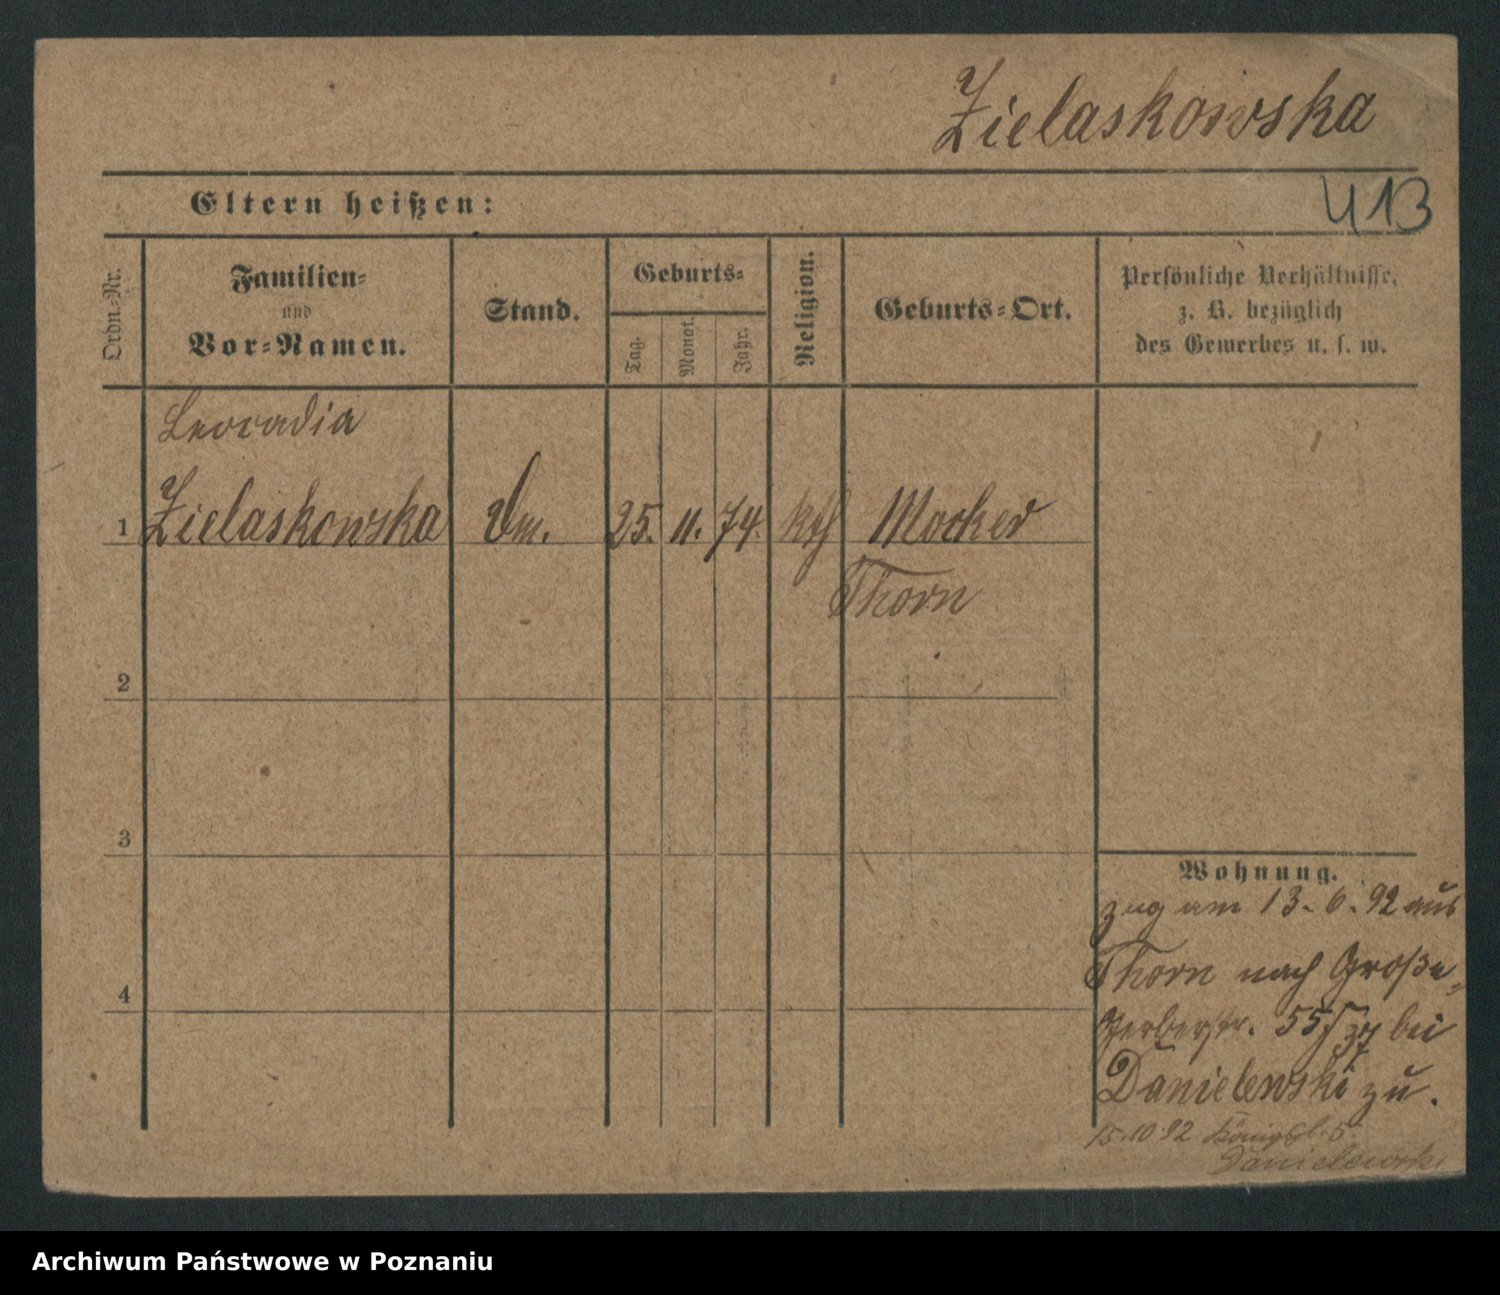 Zielaskowska
Eltern heißen:
U 13
Ordn.-Nr.
Familien-
und
Vor-Namen.
Stand.
Geburts-
Tag.
Monat.
Jahr.
Religion.
Geburts-Ort.
Persönliche Verhältnisse,
z. B. bezüglich
des Gewerbes u. s. w.
Leocadia
1 Zielaskowska
25. 11. 74. kth Mocker
Thorn
2
3
4
Wohnung.
zug am 13. 6. 92 aus
Thorn nach Große
Gerberstr. 55 bei
Danielewski zu.
15.10.92 Königspl. 5.
Danielewski
Archiwum Państwowe w Poznaniu